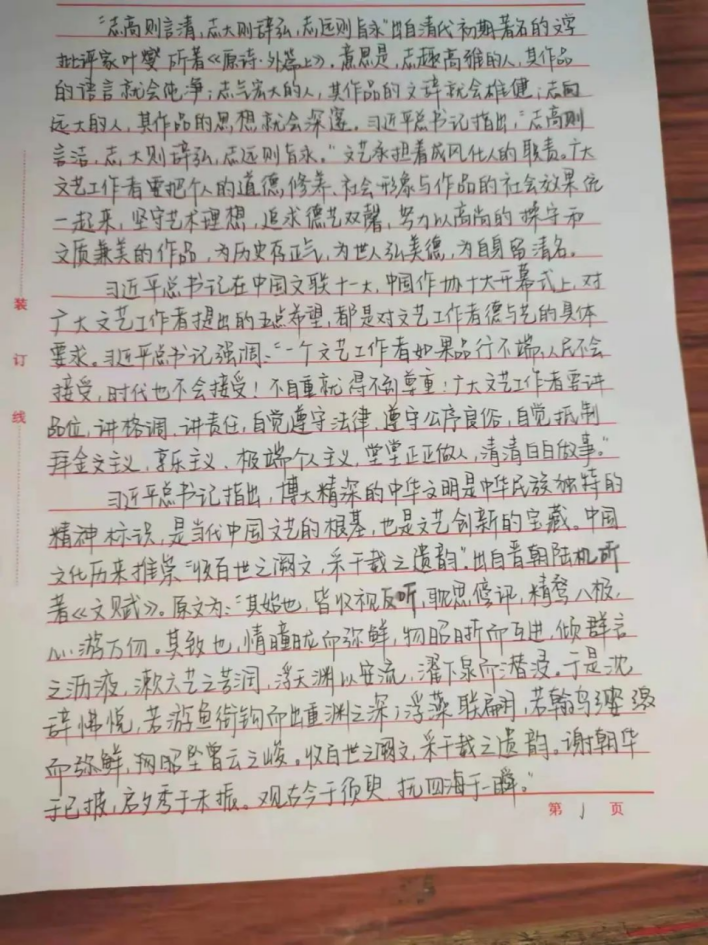 “志高则言清,志大则辞弘,志远则旨永”出自清代初期著名的文学
批评家叶燮所著《原诗·外篇上》。意思是,志趣高雅的人,其作品
的语言就会纯净;志气宏大的人,其作品的文辞就会雄健;志向
远大的人,其作品的思想就会深邃。习近平总书记指出,“志高则
言洁,志大则辞弘,志远则旨永。”文艺承担着成风化人的职责。广大
文艺工作者要把个人的道德修养、社会形象与作品的社会效果统
一起来,坚守艺术理想,追求德艺双馨,努力以高尚的操守和
文质兼美的作品,为历史存正气,为世人弘美德,为自身留清名。
习近平总书记在中国文联十一大,中国作协十大开幕式上,对
广大文艺工作者提出的五点希望,都是对文艺工作者德与艺的具体
要求。习近平总书记强调:“一个文艺工作者如果品行不端,人民不会
接受,时代也不会接受!不自重就得不到尊重!广大文艺工作者要讲
品位,讲格调,讲责任,自觉遵守法律、遵守公序良俗,自觉抵制
拜金主义、享乐主义、极端个人主义,堂堂正正做人,清清白白做事。”
习近平总书记指出,博大精深的中华文明是中华民族独特的
精神标识,是当代中国文艺的根基,也是文艺创新的宝藏。中国
文化历来推崇“收百世之阙文,采千载之遗韵”。出自晋朝陆机所
著《文赋》。原文为:“其始也,皆收视反听,耽思傍讯,精骛八极,
心游万仞。其致也,情曈昽而弥鲜,物昭晰而互进,倾群言
之沥液,漱六艺之芳润,浮天渊以安流,濯下泉而潜浸。于是沈
辞怫悦,若游鱼衔钩而出重渊之深;浮藻联翩,若翰鸟缨缴
而弥鲜,物昭坠曾云之峻。收百世之阙文,采千载之遗韵。谢朝华
于已披,启夕秀于未振。观古今于须臾,抚四海于一瞬。”
装
订
线
第 1 页